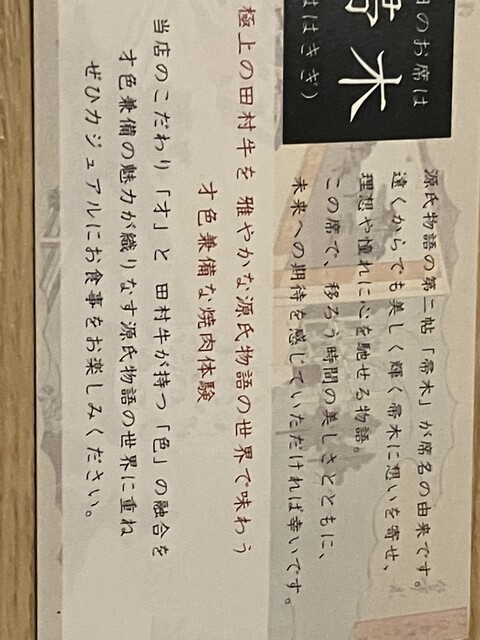 のお席は
帚木
ははきぎ）
源氏物語の第二帖「帚木」が席名の由来です。
遠くからでも美しく輝く帚木に想いを寄せ、
理想や憧れに心を馳せる物語。
この席で、移ろう時間の美しさとともに、
未来への期待を感じていただければ幸いです。
極上の田村牛を 雅やかな源氏物語の世界で味わう
才色兼備な焼肉体験
当店のこだわり「才」と 田村牛が持つ「色」の融合を
才色兼備の魅力が織りなす源氏物語の世界に重ね
ぜひカジュアルにお食事をお楽しみください。